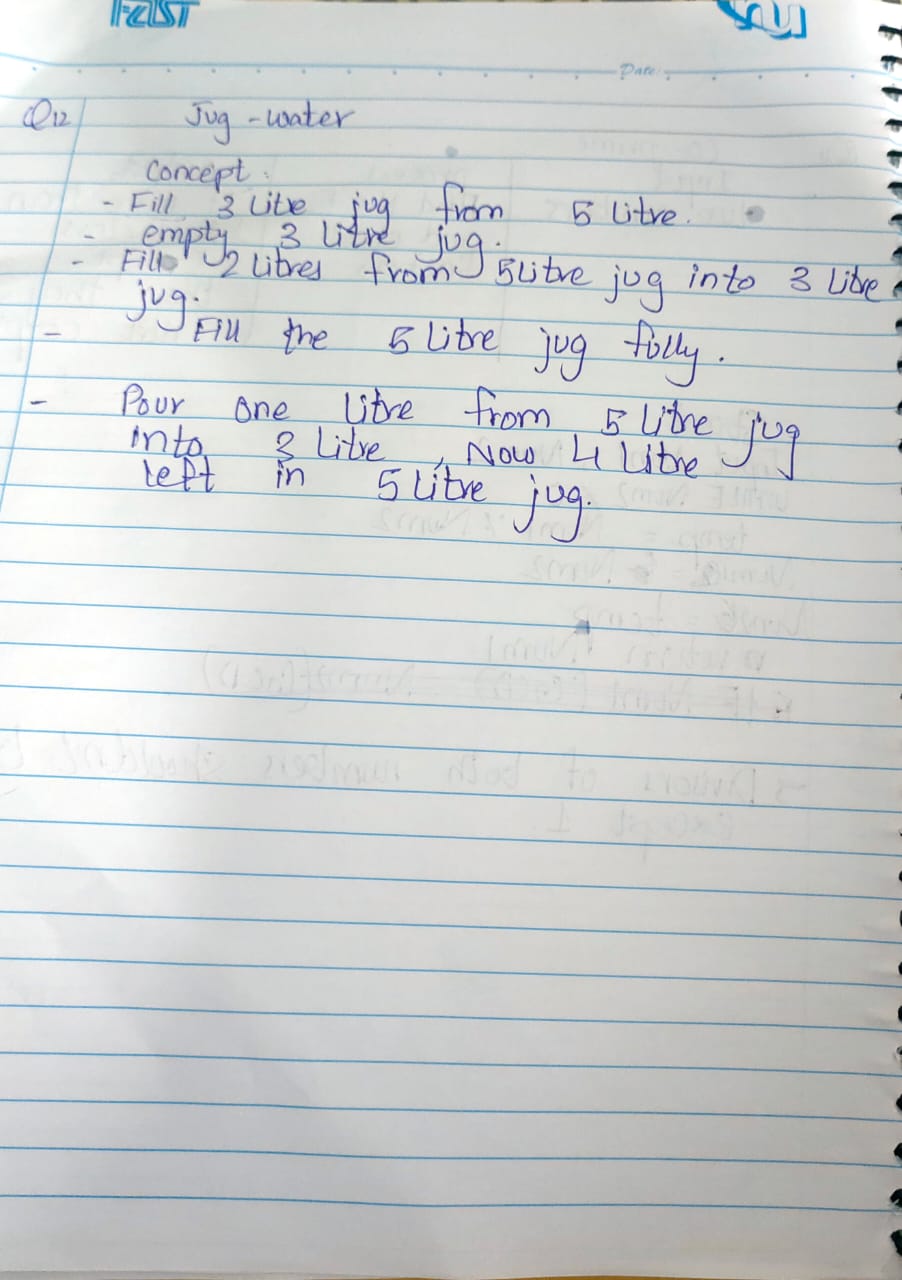 FAST
Date:
Q12 Jug-water
Concept:
- Fill 3 Litre jug from 5 litre.
- empty 3 litre jug.
- Fill 2 litres from 5litre jug into 3 litre
jug.
- Fill the 5 litre jug fully.
- Pour one litre from 5 litre jug
into 3 litre , Now 4 litre
left in 5 litre jug.